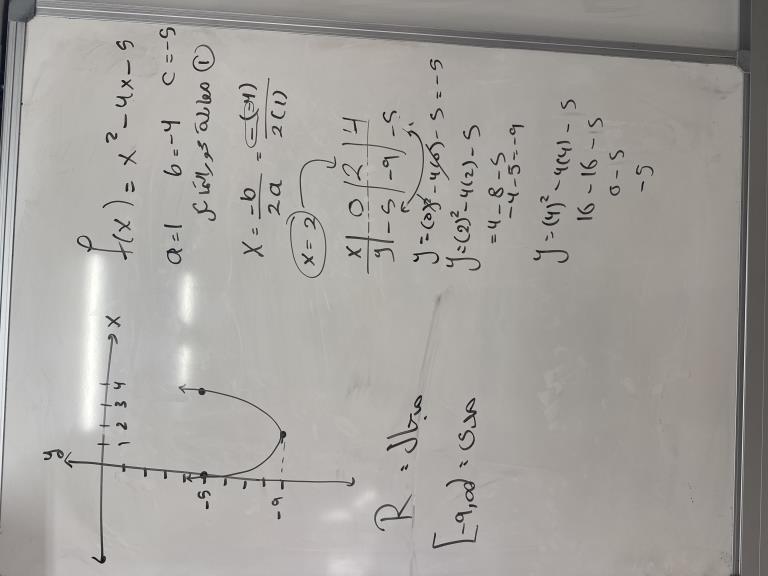 f(x) = x² - 4x - 5
a=1 b=-4 c=-5
① معادلة محور التماثل
X = -b/2a = -(-4)/2(1)
x = 2
x | 0 | 2 | 4
y | -5 | -9 | -5
y=(0)²-4(0)-5=-5
y=(2)²-4(2)-5
=4-8-5
-4-5=-9
y=(4)²-4(4)-5
16-16-5
0-5
-5
y
x
1 2 3 4
-5
-9
المجال = R
المدى = [-9,∞)